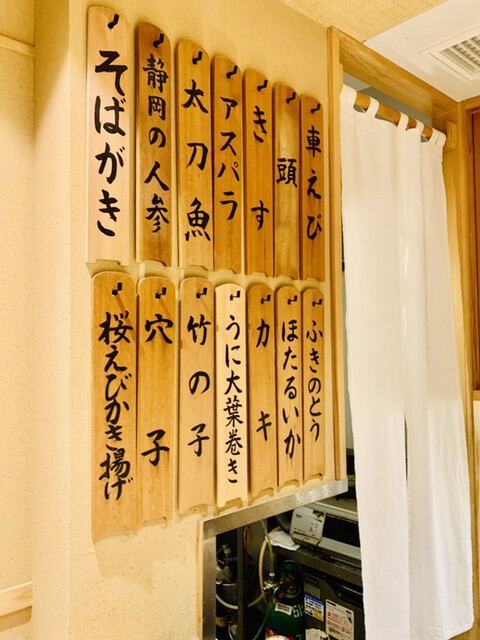 車えび
頭
きす
アスパラ
太刀魚
静岡の人参
そばがき
ふきのとう
ほたるいか
カキ
うに大葉巻き
竹の子
穴子
桜えびかき揚げ